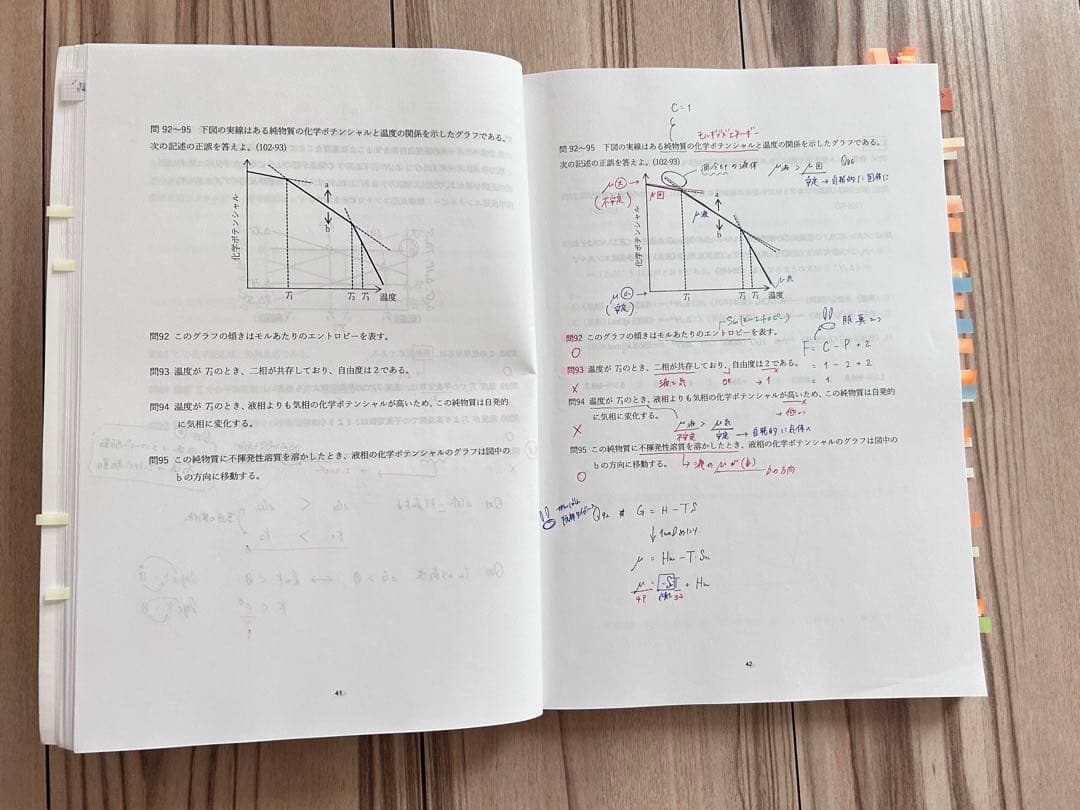 問 92～95 下図の実線はある純物質の化学ポテンシャルと温度の関係を示したグラフである。
次の記述の正誤を答えよ。(102-93)
化学ポテンシャル
a
b
T₁
T₂
T₃
温度
問92 このグラフの傾きはモルあたりのエントロピーを表す。
問93 温度が T₂のとき、二相が共存しており、自由度は2である。
問94 温度が T₃のとき、液相よりも気相の化学ポテンシャルが高いため、この純物質は自発的
に気相に変化する。
問95 この純物質に不揮発性溶質を溶かしたとき、液相の化学ポテンシャルのグラフは図中の
bの方向に移動する。
41
C=1
モルギブズエネルギー
問 92～95 下図の実線はある純物質の化学ポテンシャルと温度の関係を示したグラフである。
次の記述の正誤を答えよ。(102-93)
μ液 > μ固
安定 → 自発的に固体に
μ 大 →
(不安定)
μ固
μ液
化学ポテンシャル
a
b
μ気
T₁
T₂
T₃
温度
μ 小 →
(安定)
-Sm(エントロピー)
問92 このグラフの傾きはモルあたりのエントロピーを表す。
○
F = C - P + 2
= 1 - 2 + 2
= 1
問93 温度が T₂のとき、二相が共存しており、自由度は2である。
×
液と気
→ 1
問94 温度が T₃のとき、液相よりも気相の化学ポテンシャルが高いため、この純物質は自発的
に気相に変化する。
→ 低い
×
μ液 > μ気
不安定
安定 → 自発的に気体へ
問95 この純物質に不揮発性溶質を溶かしたとき、液相の化学ポテンシャルのグラフは図中の
bの方向に移動する。
○
→ 液の μ が(小)
bの方向
Q92
G = H - TS
↓ 1molあたり
μ = Hm - T Sm
μ = -Sm T + Hm
傾き
42